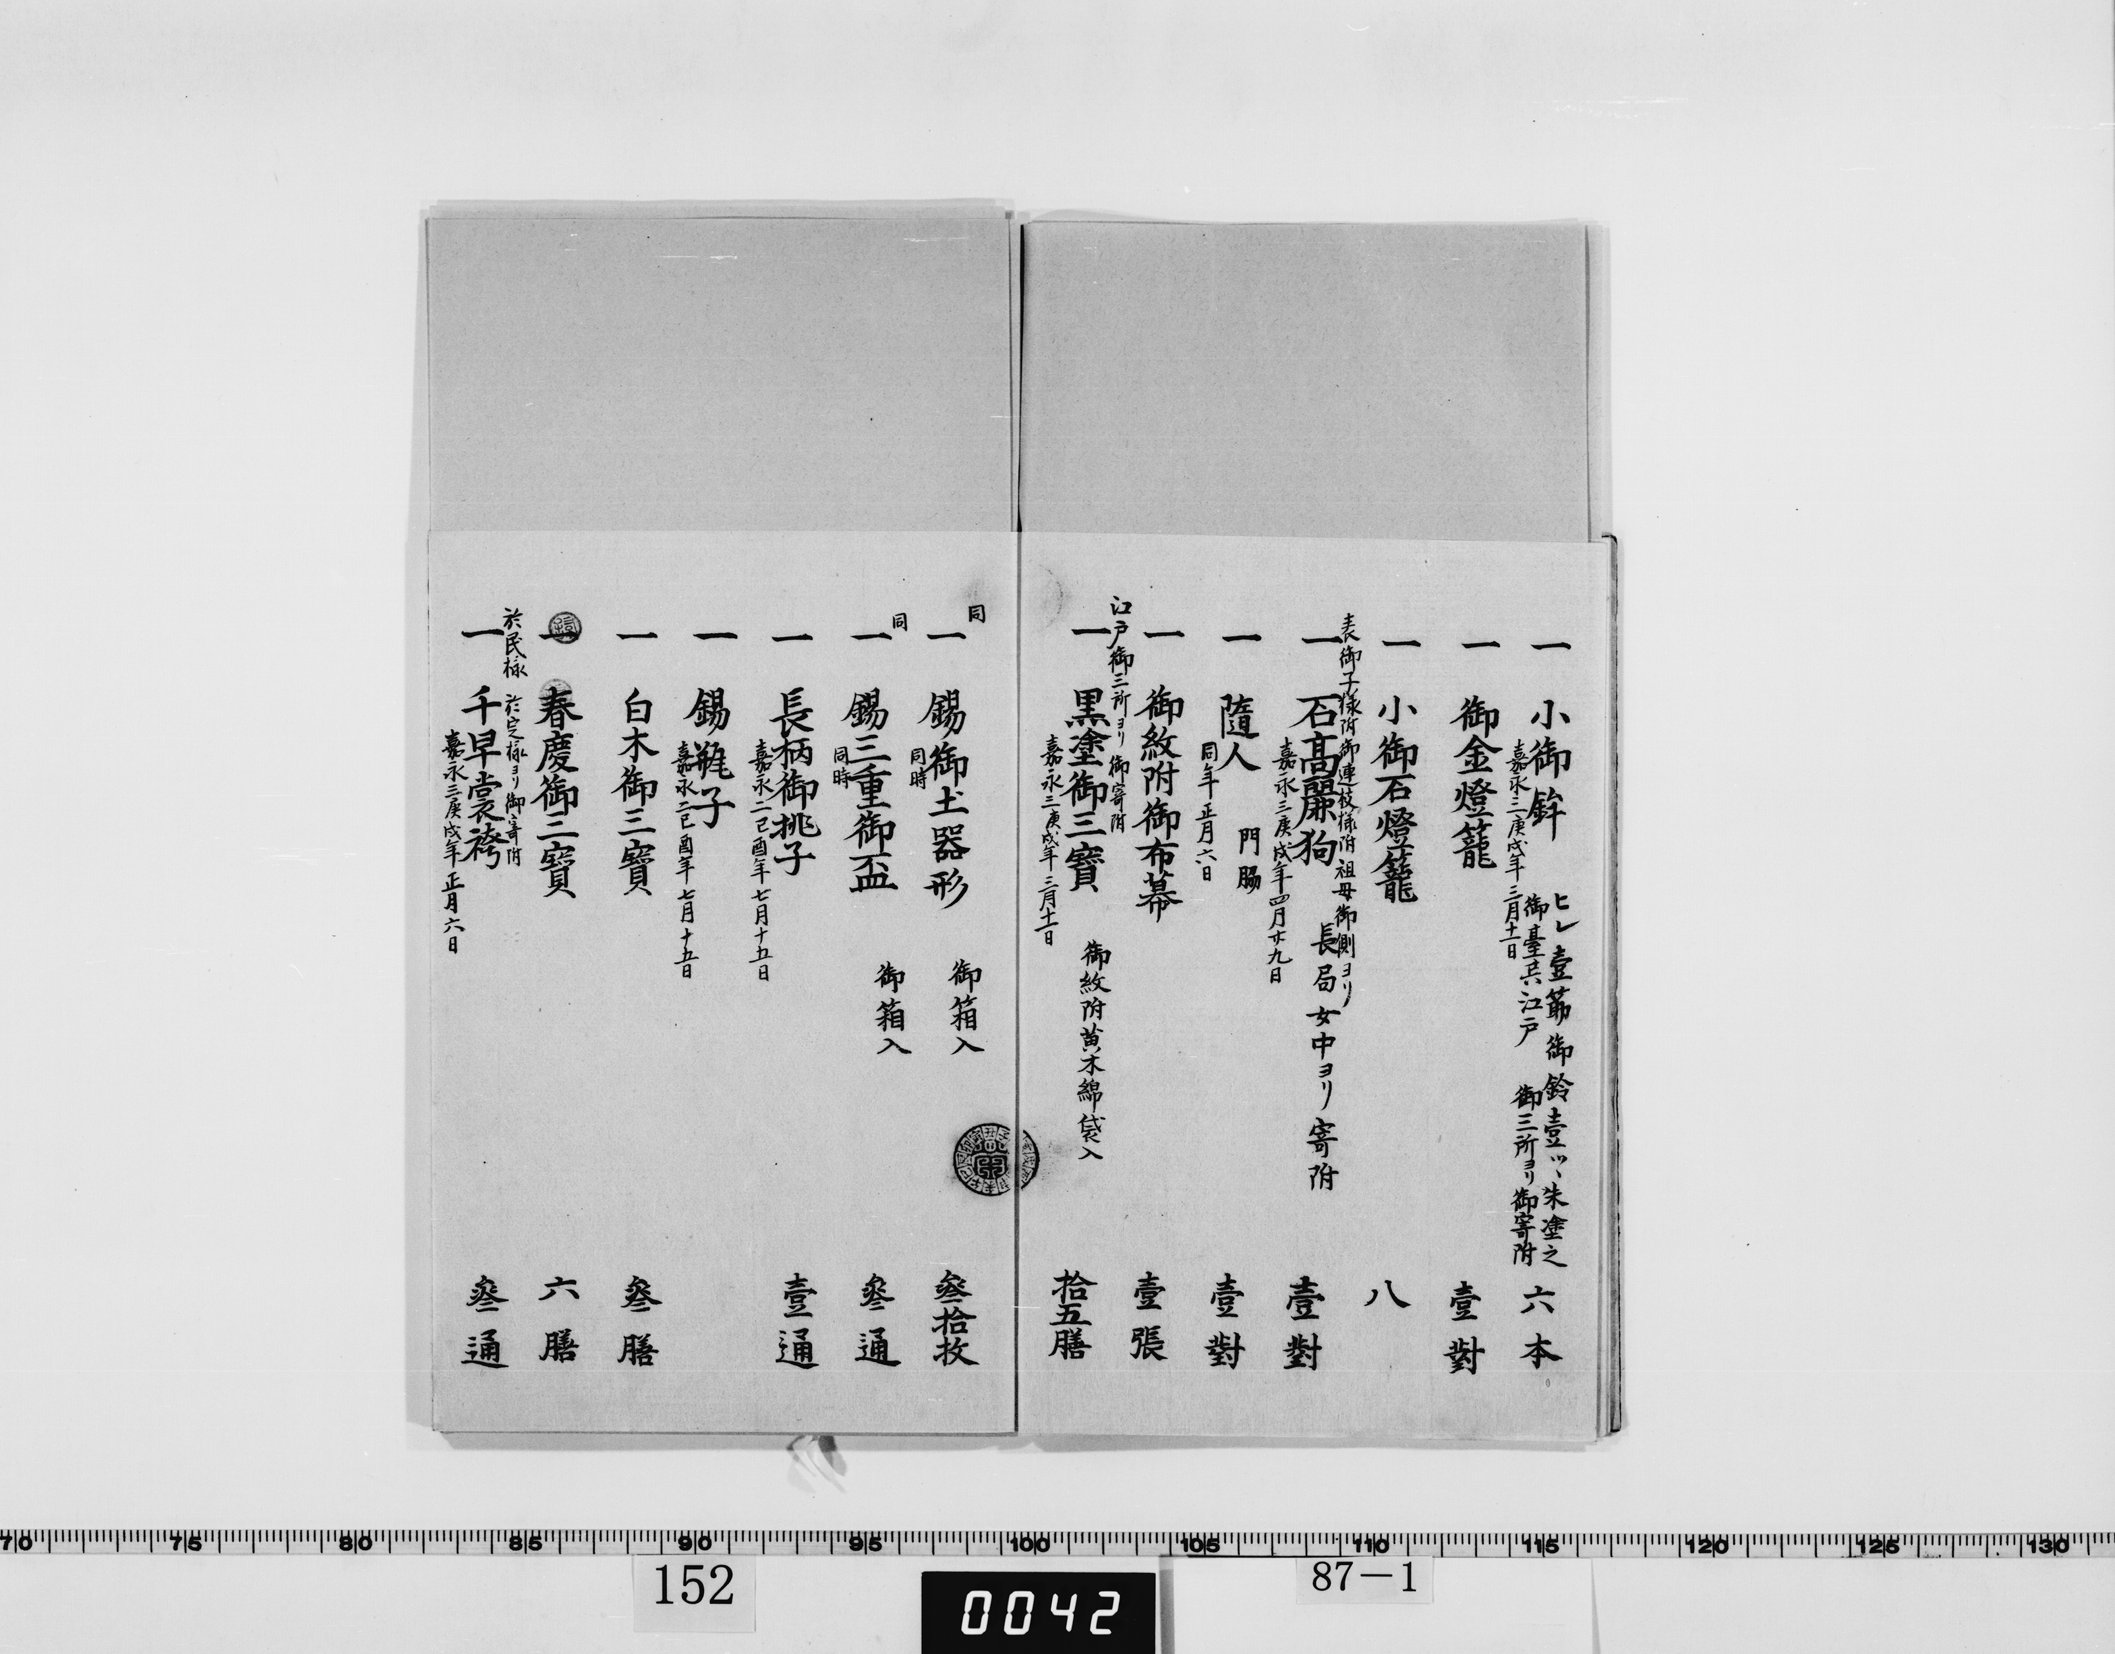 一 小御鉾 ヒレ壹節御鈴壹ツヽ朱塗之 六本
御臺共江戸 御三所ヨリ御寄附
嘉永三庚戌年三月十一日
一 御金燈籠 壹對
一 小御石燈籠 八
表御子様附御連枝様附祖母御側ヨリ
一 石高麗狗 長局女中ヨリ寄附 壹對
嘉永三庚戌年四月廿九日
一 隨人 門脇 壹對
同年正月六日
一 御紋附御布幕 壹張
江戸御三所ヨリ御寄附
一 黒塗御三寶 御紋附黄木綿袋入 拾五膳
嘉永三庚戌年三月十一日
同
一 錫御土器形 御箱入 叄拾枚
同時
同
一 錫三重御盃 御箱入 叄通
同時
一 長柄御挑子 壹通
嘉永二己酉年七月十五日
一 錫瓶子
嘉永二己酉年七月十五日
一 白木御三寶 叄膳
一 春慶御三寶 六膳
於民様 於定様ヨリ御寄附
一 千早裳袴 叄通
嘉永三庚戌年正月六日
70 75 80 85 90 95 100 105 110 115 120 125 130
152
0042
87-1